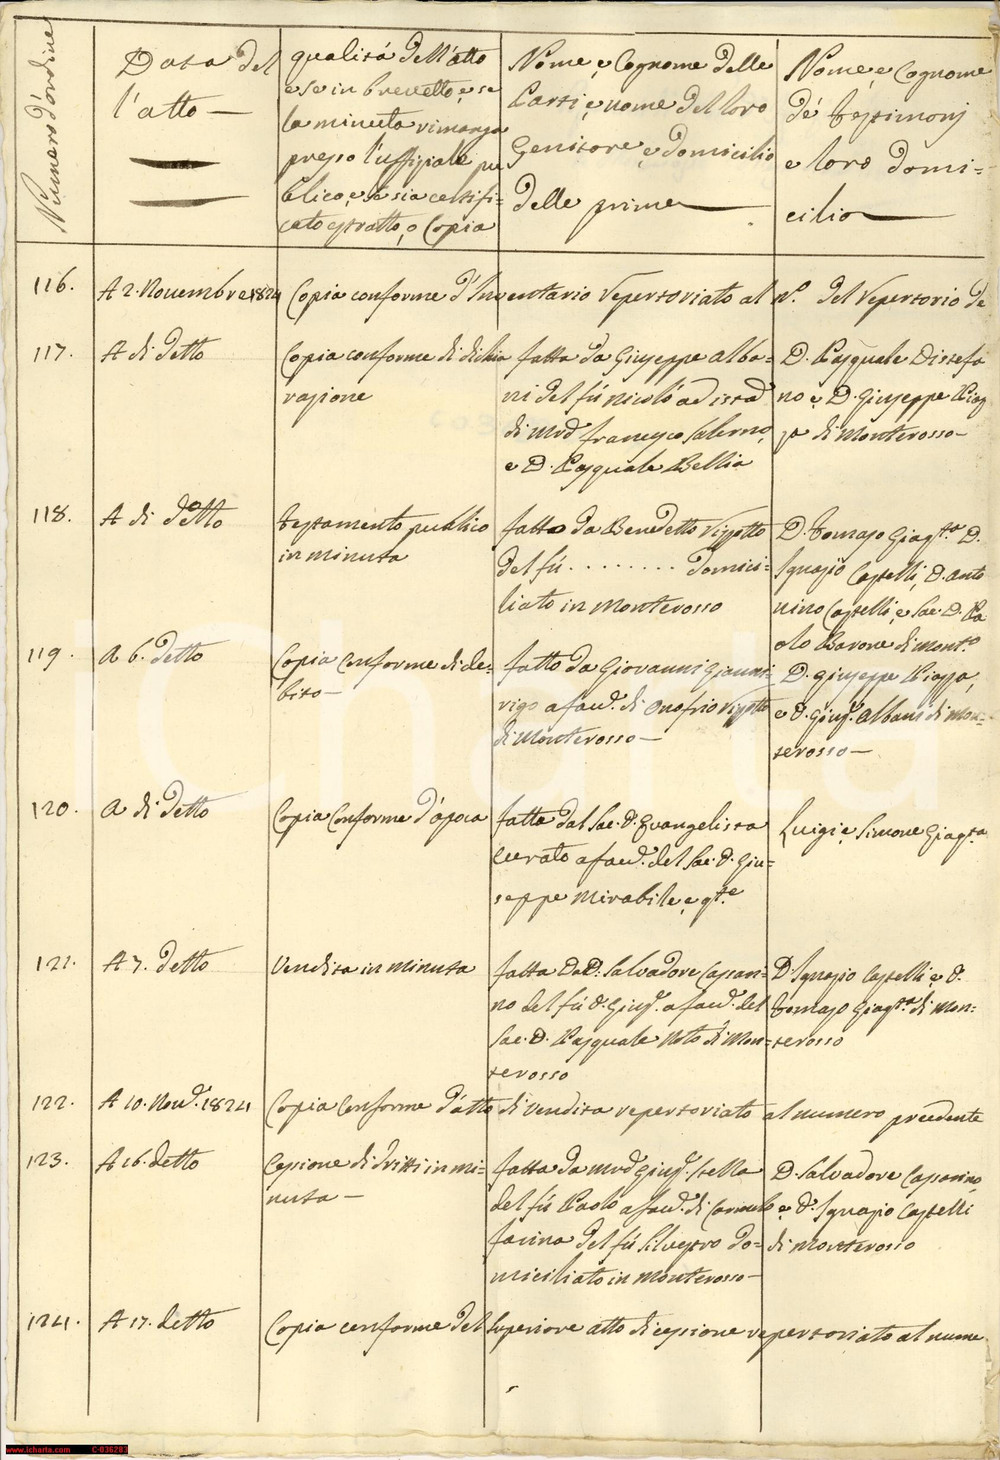 Numero d'ordine
Data del
l'atto —
qualitá dell'atto
e se in brevetto, e se
la minuta rimanga
presso l'uffiziale pu
blico, e se sia certifi-
cato estratto, o Copia
Nome, e Cognome delle
Parti, e nome del loro
Genitore e domicilio
delle prime
Nome, e Cognome
de' testimonj
e loro domi=
cilio
116. A 2. Novembre 1824 Copia conforme d'Inventario repertoriato al N.º del repertorio de
117. A di detto
Copia conforme di dichia
razione
fatta da Giuseppe Alba=
ni del fù Nicolò ad
di Mrõ Francesco Salerno,
e D. Pasquale Bellia
D. Pasquale Distefa
no e D. Giuseppe Piaz
za di Monterosso—
118. A di detto
testamento publico
in minuta
fatto da Benedetto Vizzotto
del fù . . . . . . . . domici=
liato in Monterosso
D. Tomaso Giaq.ta D.
Ignazio Castelli, D. Anto
nino Castelli, e Sac. D. Pa
olo Barone di Mont.º
119. A 6. detto
Copia Conforme di de=
bito—
fatto da Giovanni Gianni=
rigo a fav.e di Onofrio Vizzotto
di Monterosso—
D. Giuseppe Piazza,
e D. Gius.e Albani di Mon=
terosso—
120. A di detto
Copia Conforme d'apoca
fatta dal Sac. D. Evangelista
Currato a fav.e del Sac. D. Giu=
seppe Mirabile, e q.te
Luigi, e Simone Giaq.ta
121. A 7. detto
Vendita in minuta
fatta da D. Salvadore Cassari=
no del fù D. Gius.e a fav.e del
Sac. D. Pasquale Noto di Mon=
terosso
D. Ignazio Castelli e D.
Tomaso Giaq.ta di Mon=
terosso
122. A 10. Nov.e 1824 Copia Conforme d'atto di vendita repertoriato al numero precedente
123. A 16. detto
Cessione di dritti in mi=
nuta—
fatta da Mrõ Gius.e Stella
del fù Paolo a fav.e di Carmelo
farina del fù Silvestro do=
miciliato in Monterosso—
D. Salvadore Cassarino,
e D. Ignazio Castelli
di Monterosso
124. A 17. detto Copia conforme del Superiore atto di cessione repertoriato al nume
www.icharta.com C-036283